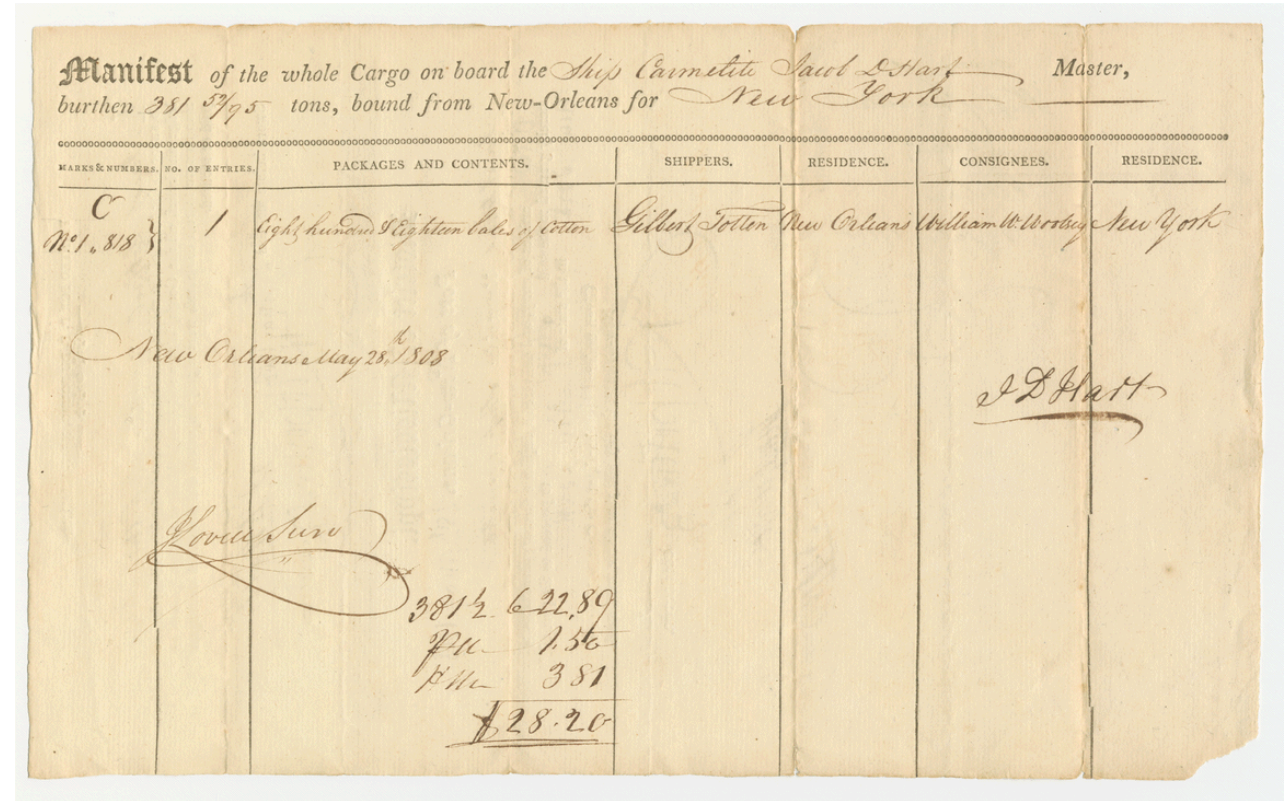 Manifest of the whole Cargo on board the Ship Carmelite Jacob D Hart Master,
burthen 381 52/95 tons, bound from New-Orleans for New York
MARKS & NUMBERS. NO. OF ENTRIES. PACKAGES AND CONTENTS. SHIPPERS. RESIDENCE. CONSIGNEES. RESIDENCE.
C
No. 1 " 818 } 1 Eight hundred & Eighteen bales of Cotton Gilbert Totten New Orleans William W. Woolsey New York
New Orleans May 28th 1808
J D Hart
Lovell Surv
381 1/2 6 22,89
1.50
381
$28.20